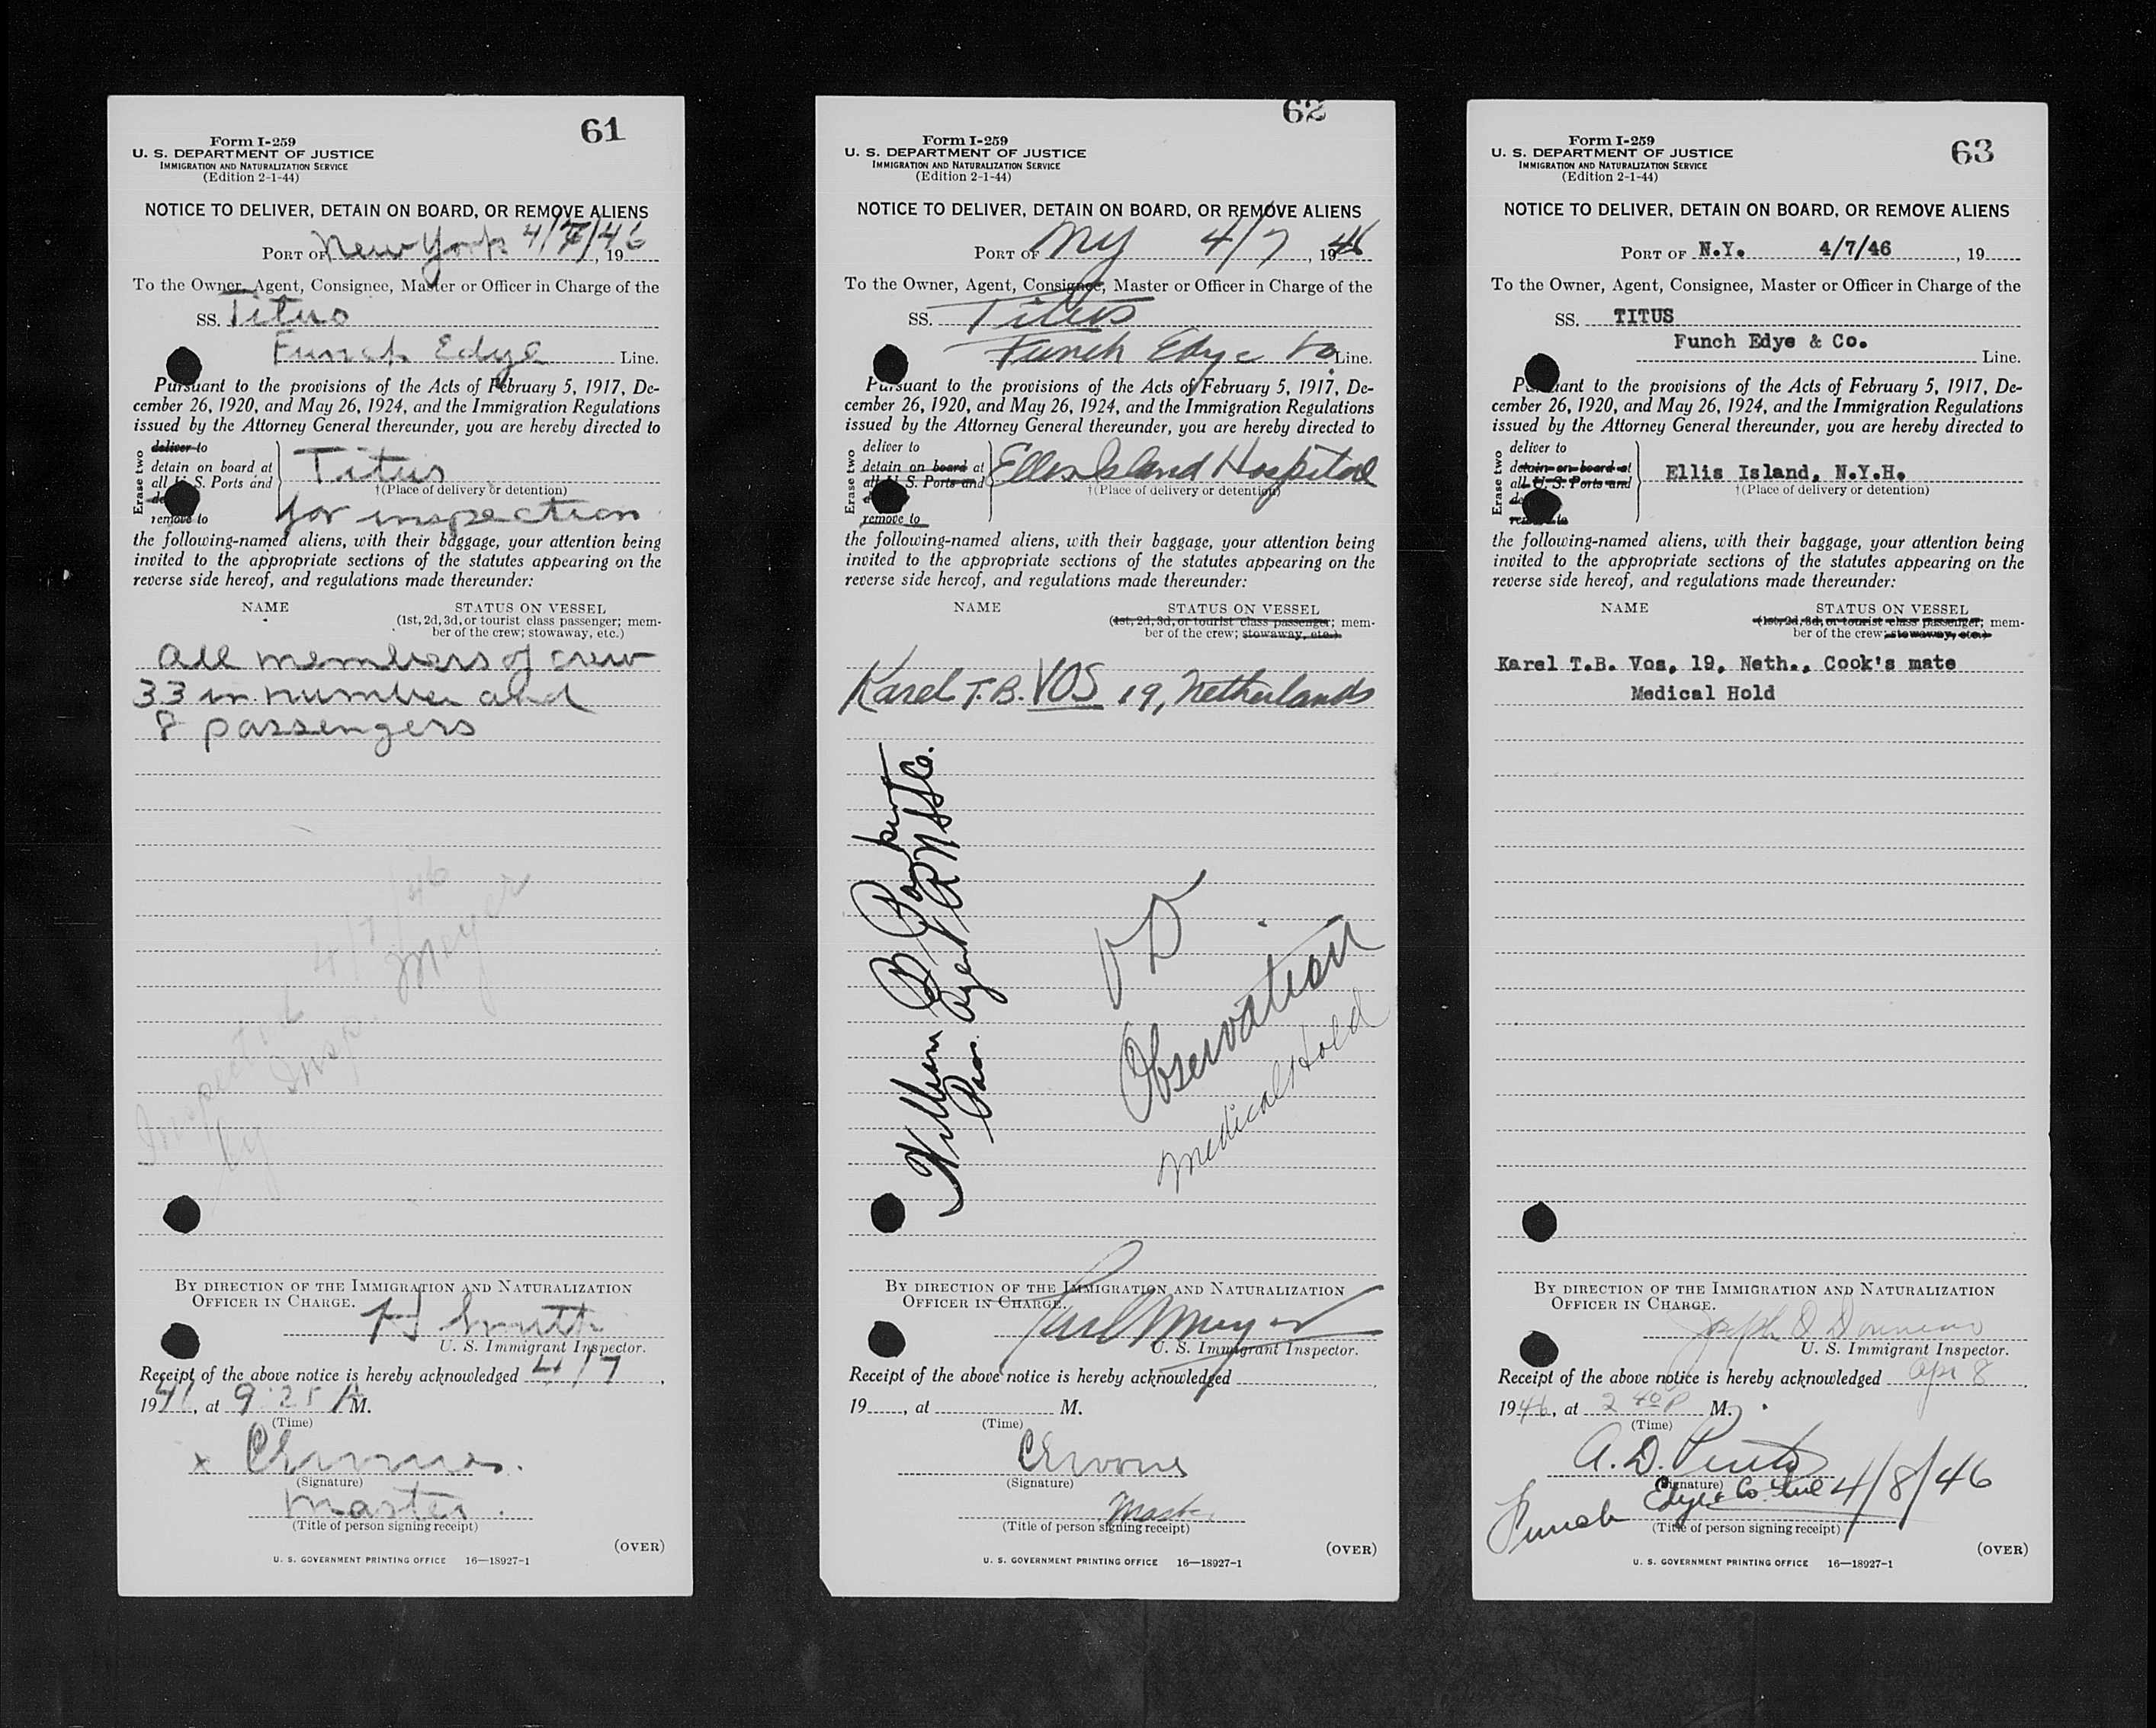 61
Form I-259
U. S. DEPARTMENT OF JUSTICE
IMMIGRATION AND NATURALIZATION SERVICE
(Edition 2-1-44)
NOTICE TO DELIVER, DETAIN ON BOARD, OR REMOVE ALIENS
PORT OF New York 4/7/46, 19
To the Owner, Agent, Consignee, Master or Officer in Charge of the
SS. Titus
Funch Edye Line.
Pursuant to the provisions of the Acts of February 5, 1917, De-
cember 26, 1920, and May 26, 1924, and the Immigration Regulations
issued by the Attorney General thereunder, you are hereby directed to
Erase two
deliver to
detain on board at
all U. S. Ports and
remove to
Titus
†(Place of delivery or detention)
for inspection
the following-named aliens, with their baggage, your attention being
invited to the appropriate sections of the statutes appearing on the
reverse side hereof, and regulations made thereunder:
NAME STATUS ON VESSEL
(1st, 2d, 3d, or tourist class passenger; mem-
ber of the crew; stowaway, etc.)
All members of crew
33 in number and
8 passengers
Inspected 4/7/46
by Insp. Meyer
BY DIRECTION OF THE IMMIGRATION AND NATURALIZATION
OFFICER IN CHARGE.
H Smith
U. S. Immigrant Inspector.
Receipt of the above notice is hereby acknowledged 4/7,
19, at 9:25 AM.
(Time)
x
(Signature)
Master.
(Title of person signing receipt)
(OVER)
U. S. GOVERNMENT PRINTING OFFICE 16—18927-1
62
Form I-259
U. S. DEPARTMENT OF JUSTICE
IMMIGRATION AND NATURALIZATION SERVICE
(Edition 2-1-44)
NOTICE TO DELIVER, DETAIN ON BOARD, OR REMOVE ALIENS
PORT OF NY 4/7, 1946
To the Owner, Agent, Consignee, Master or Officer in Charge of the
SS. Titus
Funch Edye Co Line.
Pursuant to the provisions of the Acts of February 5, 1917, De-
cember 26, 1920, and May 26, 1924, and the Immigration Regulations
issued by the Attorney General thereunder, you are hereby directed to
Erase two
deliver to
detain on board at
all U. S. Ports and
remove to
Ellis Island Hospital
†(Place of delivery or detention)
the following-named aliens, with their baggage, your attention being
invited to the appropriate sections of the statutes appearing on the
reverse side hereof, and regulations made thereunder:
NAME STATUS ON VESSEL
(1st, 2d, 3d, or tourist class passenger; mem-
ber of the crew; stowaway, etc.)
Karel T.B. VOS 19, Netherlands
William B
Pass. Agent
VD
Observation
Medical Hold
BY DIRECTION OF THE IMMIGRATION AND NATURALIZATION
OFFICER IN CHARGE.
U. S. Immigrant Inspector.
Receipt of the above notice is hereby acknowledged
19, at M.
(Time)
(Signature)
Master
(Title of person signing receipt)
(OVER)
U. S. GOVERNMENT PRINTING OFFICE 16—18927-1
63
Form I-259
U. S. DEPARTMENT OF JUSTICE
IMMIGRATION AND NATURALIZATION SERVICE
(Edition 2-1-44)
NOTICE TO DELIVER, DETAIN ON BOARD, OR REMOVE ALIENS
PORT OF N.Y. 4/7/46, 19
To the Owner, Agent, Consignee, Master or Officer in Charge of the
SS. TITUS
Funch Edye & Co. Line.
Pursuant to the provisions of the Acts of February 5, 1917, De-
cember 26, 1920, and May 26, 1924, and the Immigration Regulations
issued by the Attorney General thereunder, you are hereby directed to
Erase two
deliver to
detain on board at
all U. S. Ports and
remove to
Ellis Island, N.Y.H.
†(Place of delivery or detention)
the following-named aliens, with their baggage, your attention being
invited to the appropriate sections of the statutes appearing on the
reverse side hereof, and regulations made thereunder:
NAME STATUS ON VESSEL
(1st, 2d, 3d, or tourist class passenger; mem-
ber of the crew; stowaway, etc.)
Karel T.B. Vos, 19, Neth., Cook's mate
Medical Hold
BY DIRECTION OF THE IMMIGRATION AND NATURALIZATION
OFFICER IN CHARGE.
Joseph
U. S. Immigrant Inspector.
Receipt of the above notice is hereby acknowledged Apr 8,
1946, at 2 40 P M.
(Time)
A. D. Pinto
(Signature)
Funch Edye & Co. Inc 4/8/46
(Title of person signing receipt)
(OVER)
U. S. GOVERNMENT PRINTING OFFICE 16—18927-1